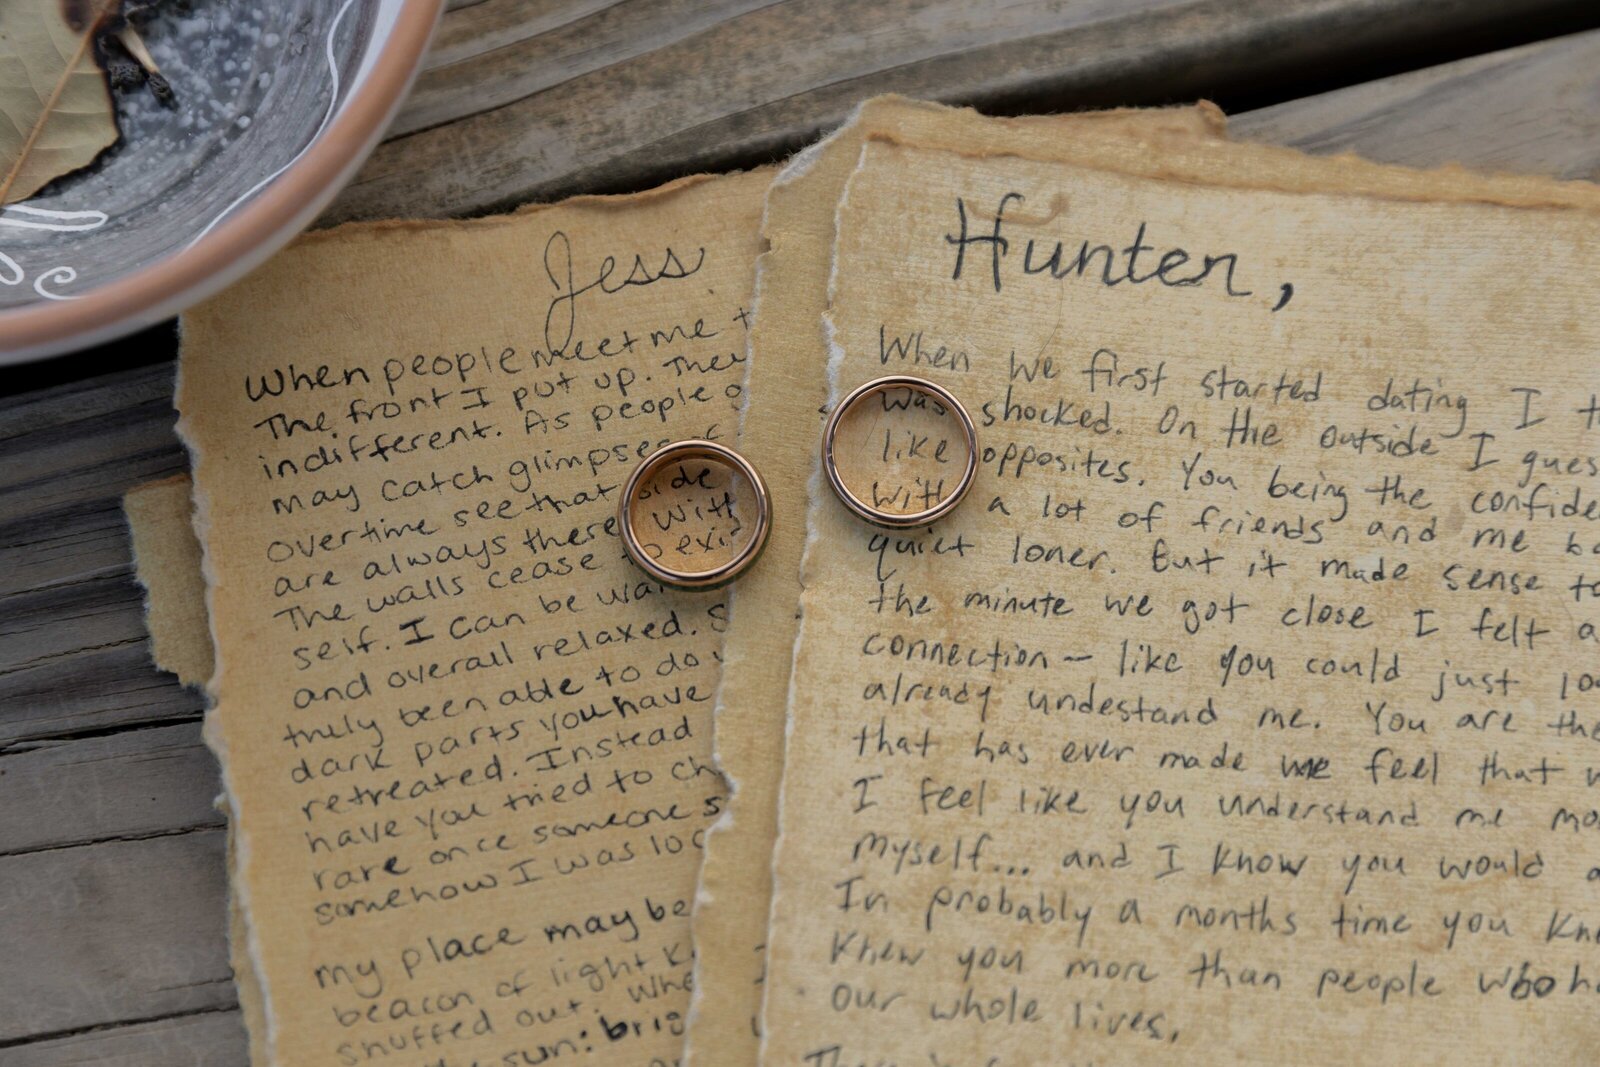 Jess
When people meet me
The front I put up. They
indifferent. As people
may catch glimpses of
overtime see that side
are always there with
The walls cease to exist
self. I can be
and overall relaxed.
truly been able to do
dark parts you have
retreated. Instead
have you tried to
rare once someone
somehow I was
my place may be
beacon of light
snuffed out. Whe
sun: brig
Hunter,
When we first started dating I
was shocked. On the outside I gues
like opposites. You being the confide
with a lot of friends and me
quiet loner. But it made sense to
the minute we got close I felt a
connection - like you could just
already undestand me. You are the
that has ever made me feel that
I feel like you understand me mo
myself... and I know you would a
In probably a months time you kn
knew you more than people who
our whole lives.